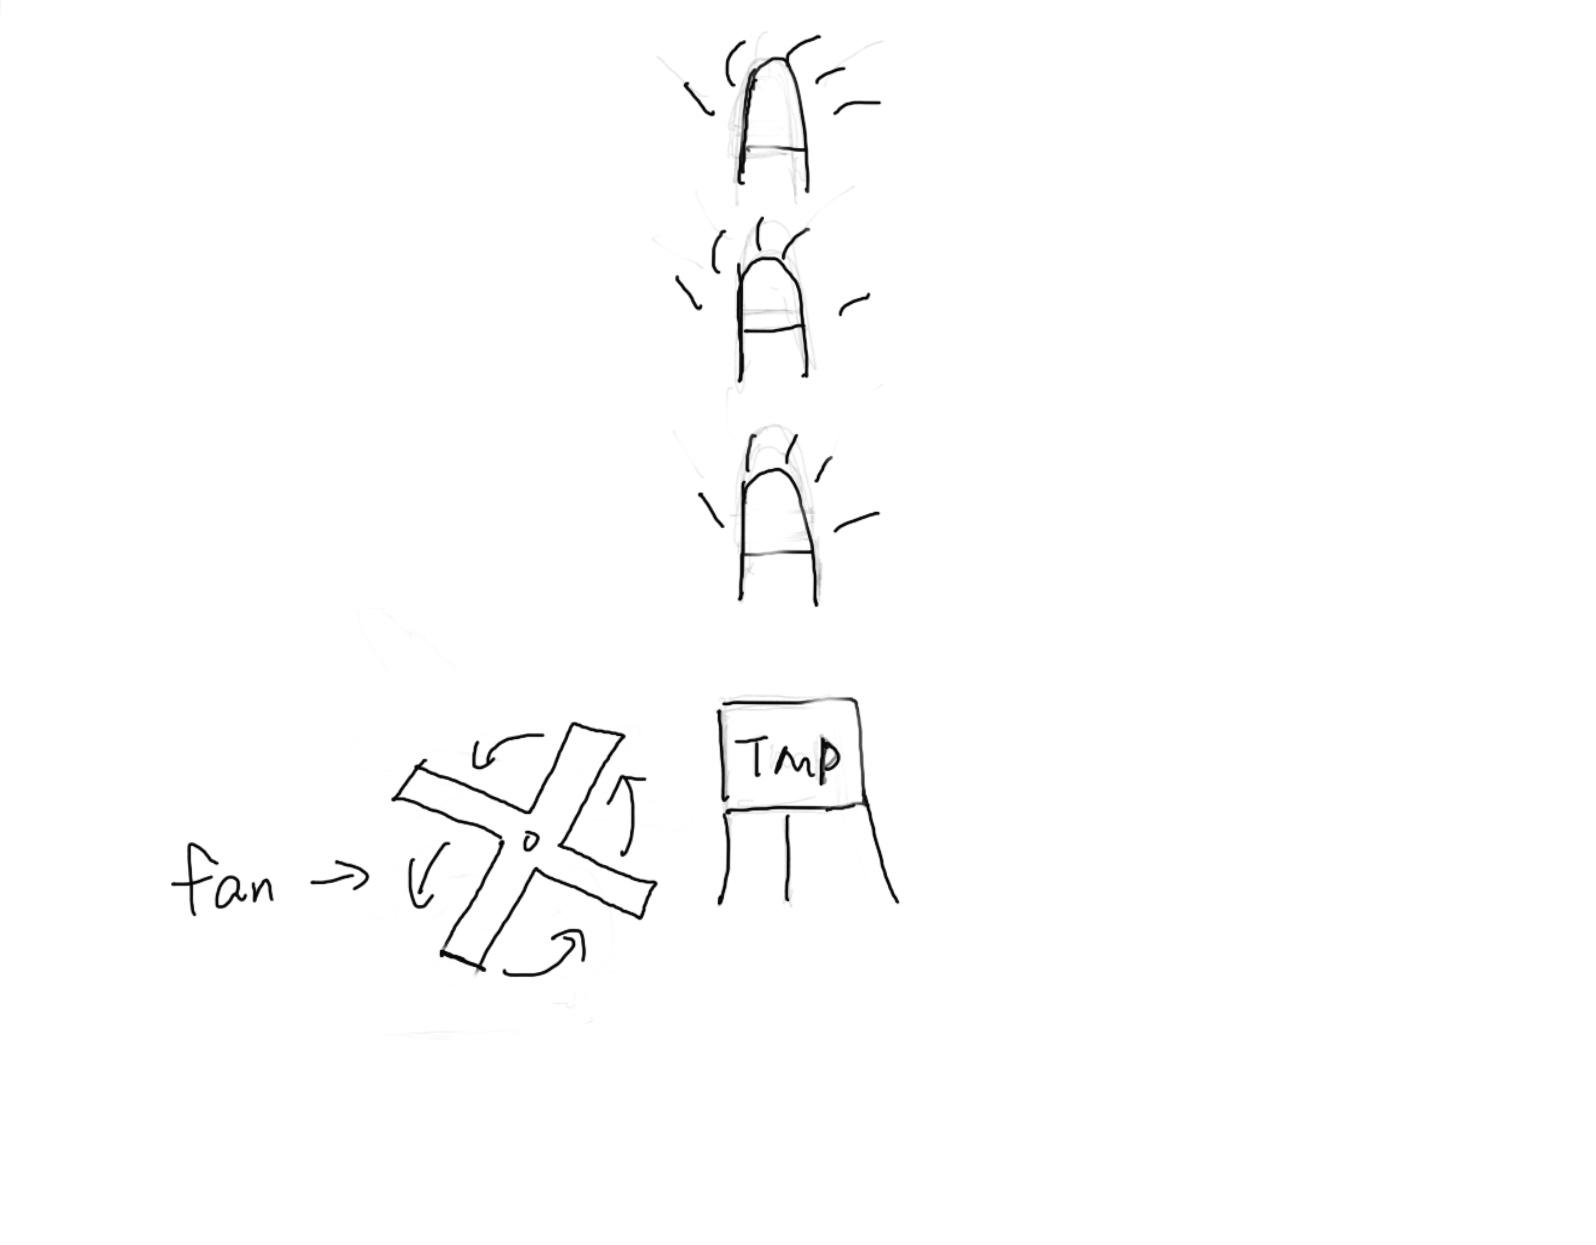 TMP
fan →